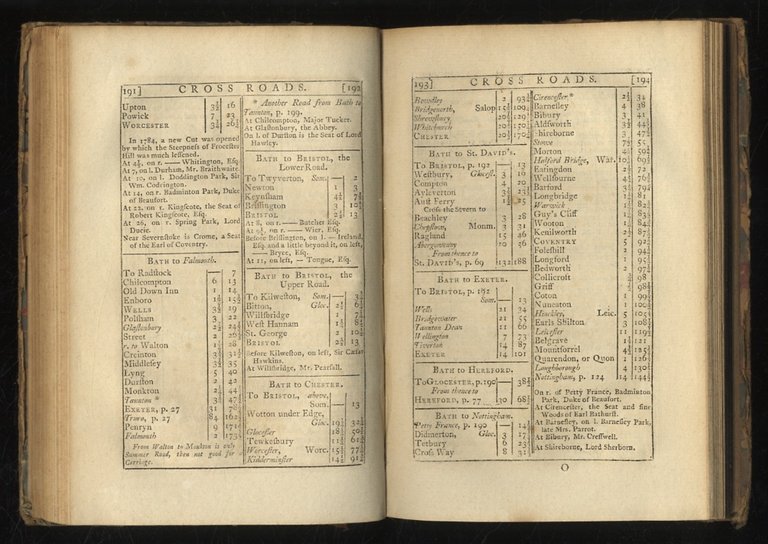 191] CROSS ROADS. [192
Upton 3½ 16
Powick 7 23
WORCESTER 3½ 26½
In 1784, a new Cut was opened
by which the Steepness of Frocester
Hill was much lessened.
At 4½, on r. —— Whittington, Esq.
At 7, on l. Durham, Mr. Braithwaite
At 10, on l. Doddington Park, Sir
Wm. Codrington.
At 14, on r. Badminton Park, Duke
of Beaufort.
At 22, on r. Kingscote, the Seat of
Robert Kingscote, Esq.
At 26, on r. Spring Park, Lord
Ducie.
Near Severnstoke is Crome, a Seat
of the Earl of Coventry.
BATH to Falmouth.
To Radstock — 7
Chilcompton 6 13
Old Down Inn 1 14
Enboro 1½ 15½
WELLS 3½ 19
Polsham 3 22
Glastonbury 2½ 24½
Street 2 26½
r. to Walton 1½ 28
Greinton 3½ 31½
Middlesey 3½ 35
Lyng 5 40
Durston 2 42
Monkton 2½ 44½
Taunton * 3½ 47½
EXETER, p. 27 31 78½
Truro, p. 27 84 162½
Penryn 9 171½
Falmouth 2 173½
From Walton to Moulton is only
Summer Road, then not good for a
Carriage.
* Another Road from Bath to
Taunton, p. 199.
At Chilcompton, Major Tucker.
At Glastonbury, the Abbey.
On l. of Durston is the Seat of Lord
Hawley.
BATH to BRISTOL, the
Lower Road.
To Twyverton, Som. — 2
Newton 1 3
Keynsham 4½ 7½
Brislington 3 10½
BRISTOL 2½ 13
At 8, on r. —— Butcher Esq.
At 9½, on r. —— Wier, Esq.
Before Brislington, on l. — Ireland,
Esq. and a little beyond it, on left,
—— Bryce, Esq.
At 11, on left, — Tongue, Esq.
BATH to BRISTOL, the
Upper Road.
To Kilweston, Som. — 3½
Bitton, Gloc. 2½ 6½
Willsbridge 1 7½
West Hannam 1½ 8½
St. George 2 10½
BRISTOL 2½ 13
Before Kilweston, on left, Sir Cæsar
Hawkins.
At Willsbridge, Mr. Pearsall.
BATH to CHESTER.
To BRISTOL, above,
Som. — 13
Wotton under Edge,
Gloc. 19½ 32½
Glocester 18½ 50½
Tewkesbury 11½ 61½
Worcester, Worc. 15½ 77½
Kidderminster 14½ 91½
193] CROSS ROADS. [194
Bewdley 2 93½
Bridgenorth, Salop 15½ 109½
Shrewsbury 20½ 129½
Whitchurch 20½ 150½
CHESTER 20½ 170½
BATH to St. DAVID's.
To BRISTOL, p. 192 — 13
Westbury, Glocest. 3 16
Compton 4 20
Aylverton 3½ 23½
Aust Ferry 1½ 25
Cross the Severn to
Beachley 3 28
Chepstow, Monm. 3 31
Ragland 15 46
Abergavenny 10 56
From thence to
St. DAVID's, p. 69 132 188
BATH to EXETER.
To BRISTOL, p. 192
Som. — 13
Wells 21 34
Bridgewater 21 55
Taunton Dean 11 66
Wellington 7 73
Tiverton 14 87
EXETER 14 101
BATH to HEREFORD.
To GLOCESTER, p. 190 — 38½
From thence to
HEREFORD, p. 77 30 68½
BATH to Nottingham.
Petty France, p. 190 — 14½
Didmerton, Gloc. 3 17
Tetbury 6 23
Cross Way 8 31
Cirencester.* 2½ 34
Barnesley 4 38
Bibury 3 41
Aldsworth 3½ 44½
Shireborne 3 47½
Stowe 7½ 55
Morton 4½ 59½
Halford Bridge, War. 10½ 69½
Eatingdon 2½ 72
Wellsbourne 4½ 76½
Barford 3½ 79½
Longbridge 1½ 81
Warwick 1½ 82½
Guy's Cliff 1½ 83½
Wooton 1½ 84½
Kenilworth 2½ 87½
COVENTRY 5 92½
Foleshill 2 94½
Longford 1 95½
Bedworth 2 97½
Collicroft ½ 98
Griff ½ 98½
Coton 1 99½
Nuneaton 1 100½
Hinckley, Leic. 5 105½
Earls Shilton 3 108½
Leicester 11 119½
Belgrave 1½ 121
Mountsorrel 4½ 125½
Quarendon, or Quon 1 126½
Loughborough 4 130½
Nottingham, p. 124 14 144½
On r. of Petty France, Badminton
Park, Duke of Beaufort.
At Cirencester, the Seat and fine
Woods of Earl Bathurst.
At Barnesley, on l. Barnesley Park,
late Mrs. Parrot.
At Bibury, Mr. Cresswell.
At Shireborne, Lord Sherborn.
O